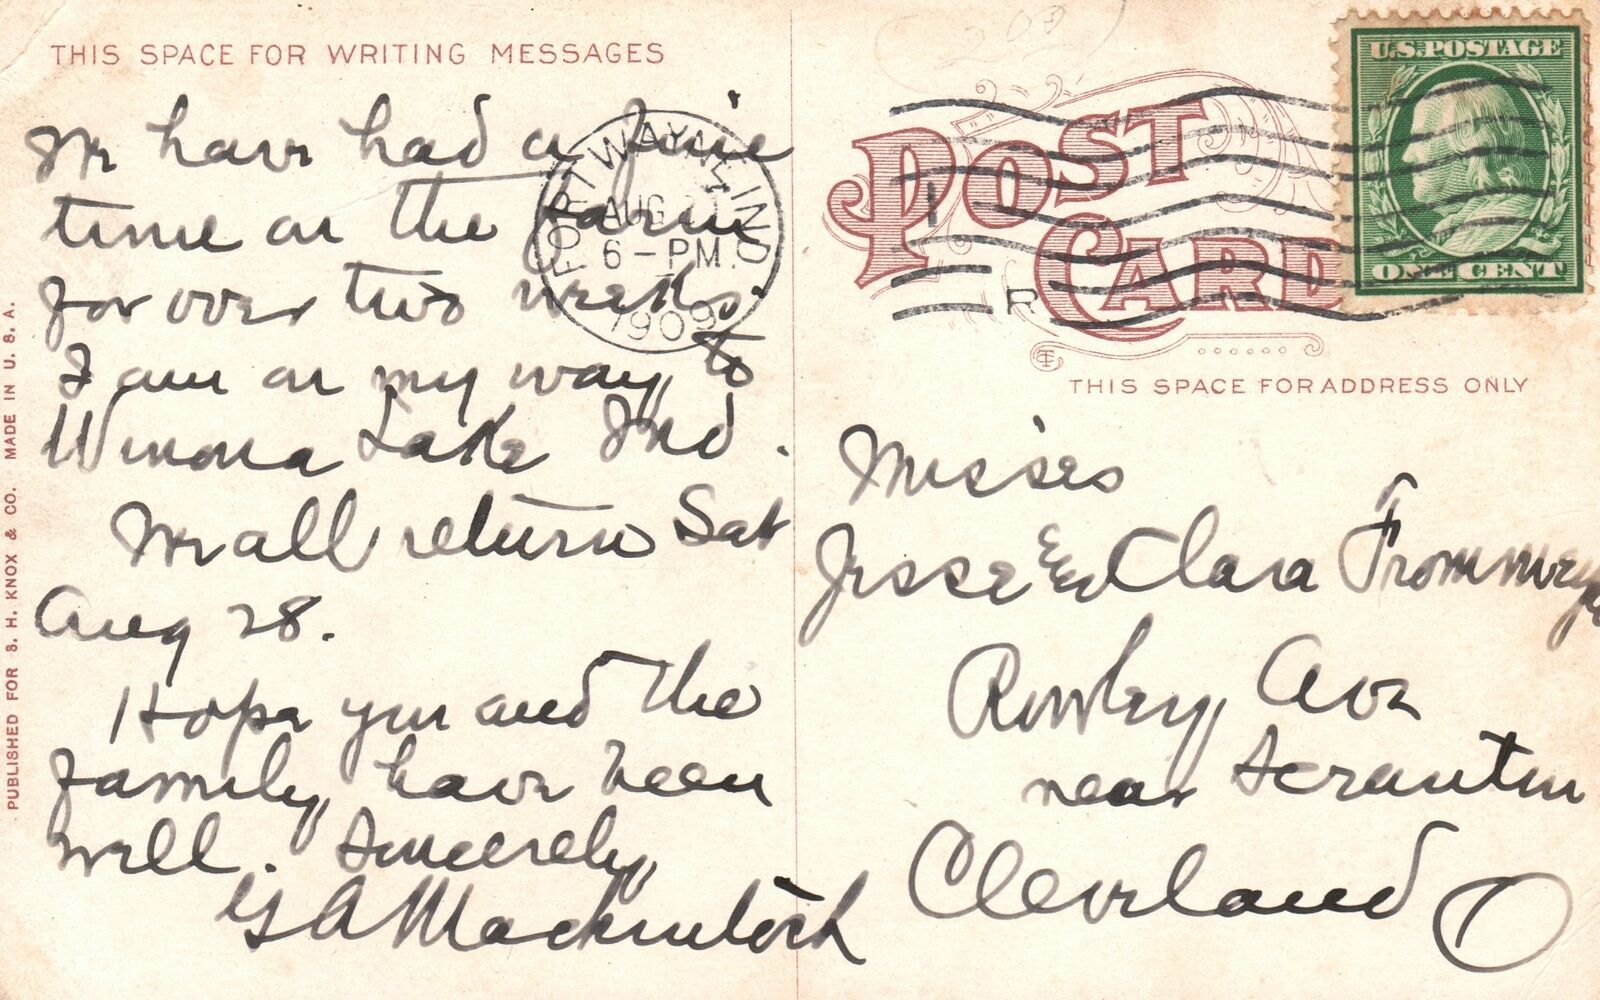 THIS SPACE FOR WRITING MESSAGES
We have had a fine
time on the farm
for over two weeks.
I am on my way to
Winona Lake Ind.
We all return Sat
Aug 28.
Hope you and the
family have been
well. Sincerely,
G A Mackintosh
PUBLISHED FOR S. H. KNOX & CO. MADE IN U. S. A.
FORT WAYNE, IND
AUG
6-PM
1909
R
POST CARD
U.S.POSTAGE
ONE CENT
THIS SPACE FOR ADDRESS ONLY
Misses
Jesse & Clara
Rowley Ave
near Scranton
Cleveland O